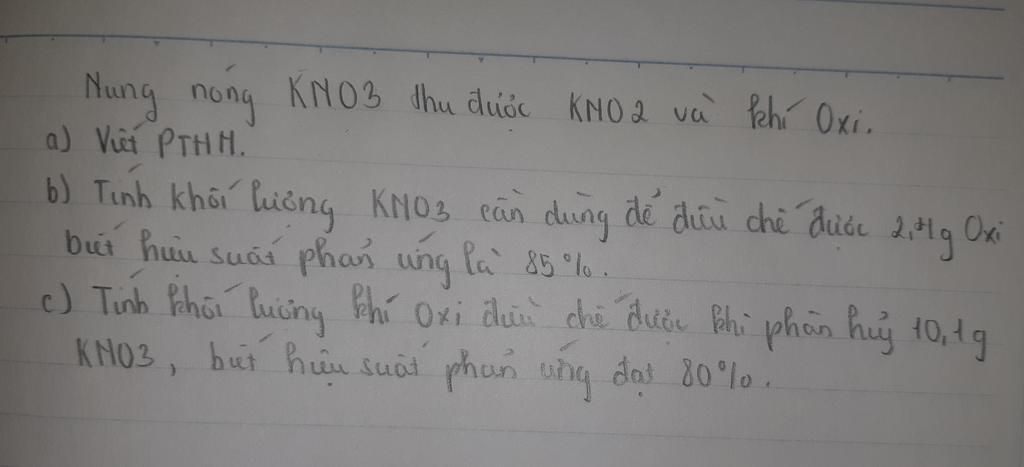 Nung nóng KNO3 thu được KNO2 và khí Oxi.
a) Viết PTHH.
b) Tính khối lượng KNO3 cần dùng để điều chế được 2,4g Oxi
biết hiệu suất phản ứng là 85%.
c) Tính khối lượng khí Oxi điều chế được khi phân huỷ 10,1g
KNO3, biết hiệu suất phản ứng đạt 80%.